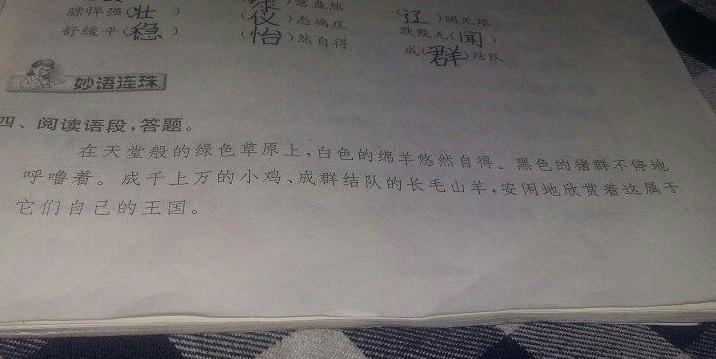 骠悍强(壮)
(绿)意盎然
(辽)阔无垠
舒缓平(稳)
(仪)态端庄
默默无(闻)
(怡)然自得
成(群)结队
妙语连珠
四、阅读语段,答题。
在天堂般的绿色草原上,白色的绵羊悠然自得。黑色的猪群不停地
呼噜着。成千上万的小鸡、成群结队的长毛山羊,安闲地欣赏着这属于
它们自己的王国。